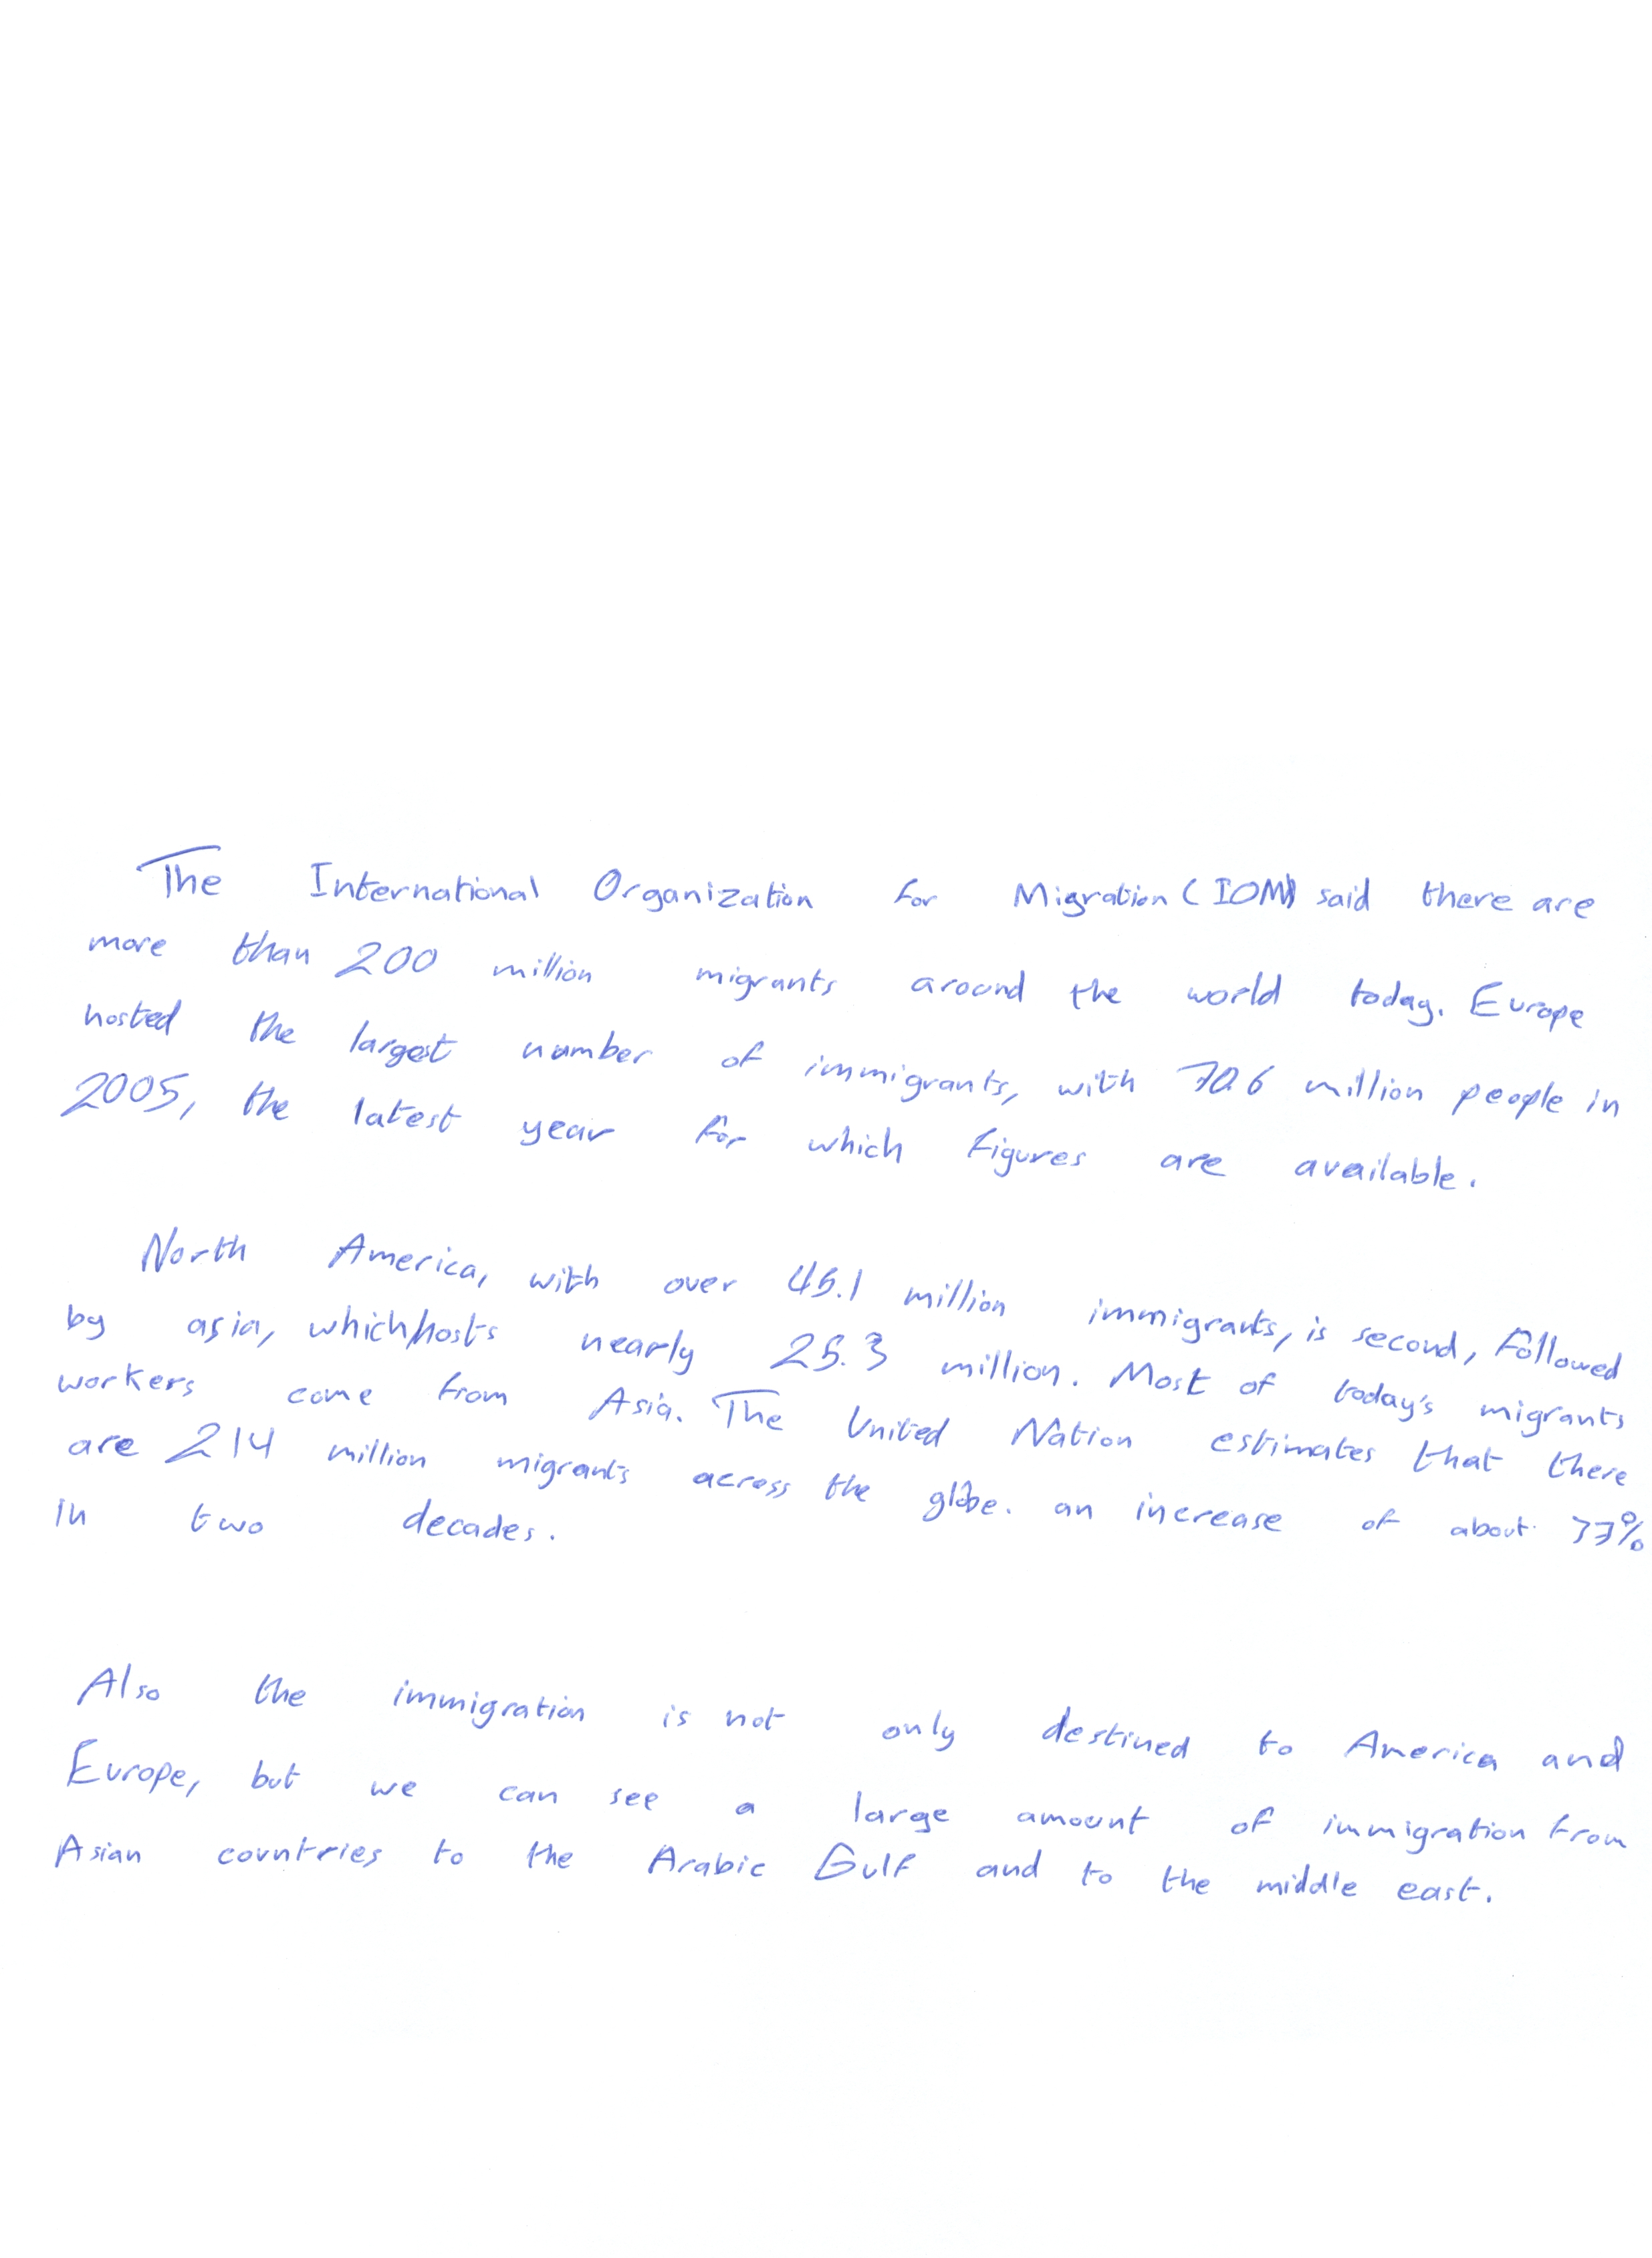 The International Organization for Migration (IOM) said there are
more than 200 million migrants around the world today. Europe
hosted the largest number of immigrants, with 70.6 million people in
2005, the latest year for which figures are available.
North America, with over 45.1 million immigrants, is second, followed
by asia, which hosts nearly 25.3 million. Most of today's migrants
workers come from Asia. The United Nation estimates that there
are 214 million migrants across the globe. an increase of about 37%
in two decades.
Also the immigration is not only destined to America and
Europe, but we can see a large amount of immigration from
Asian countries to the Arabic Gulf and to the middle east.